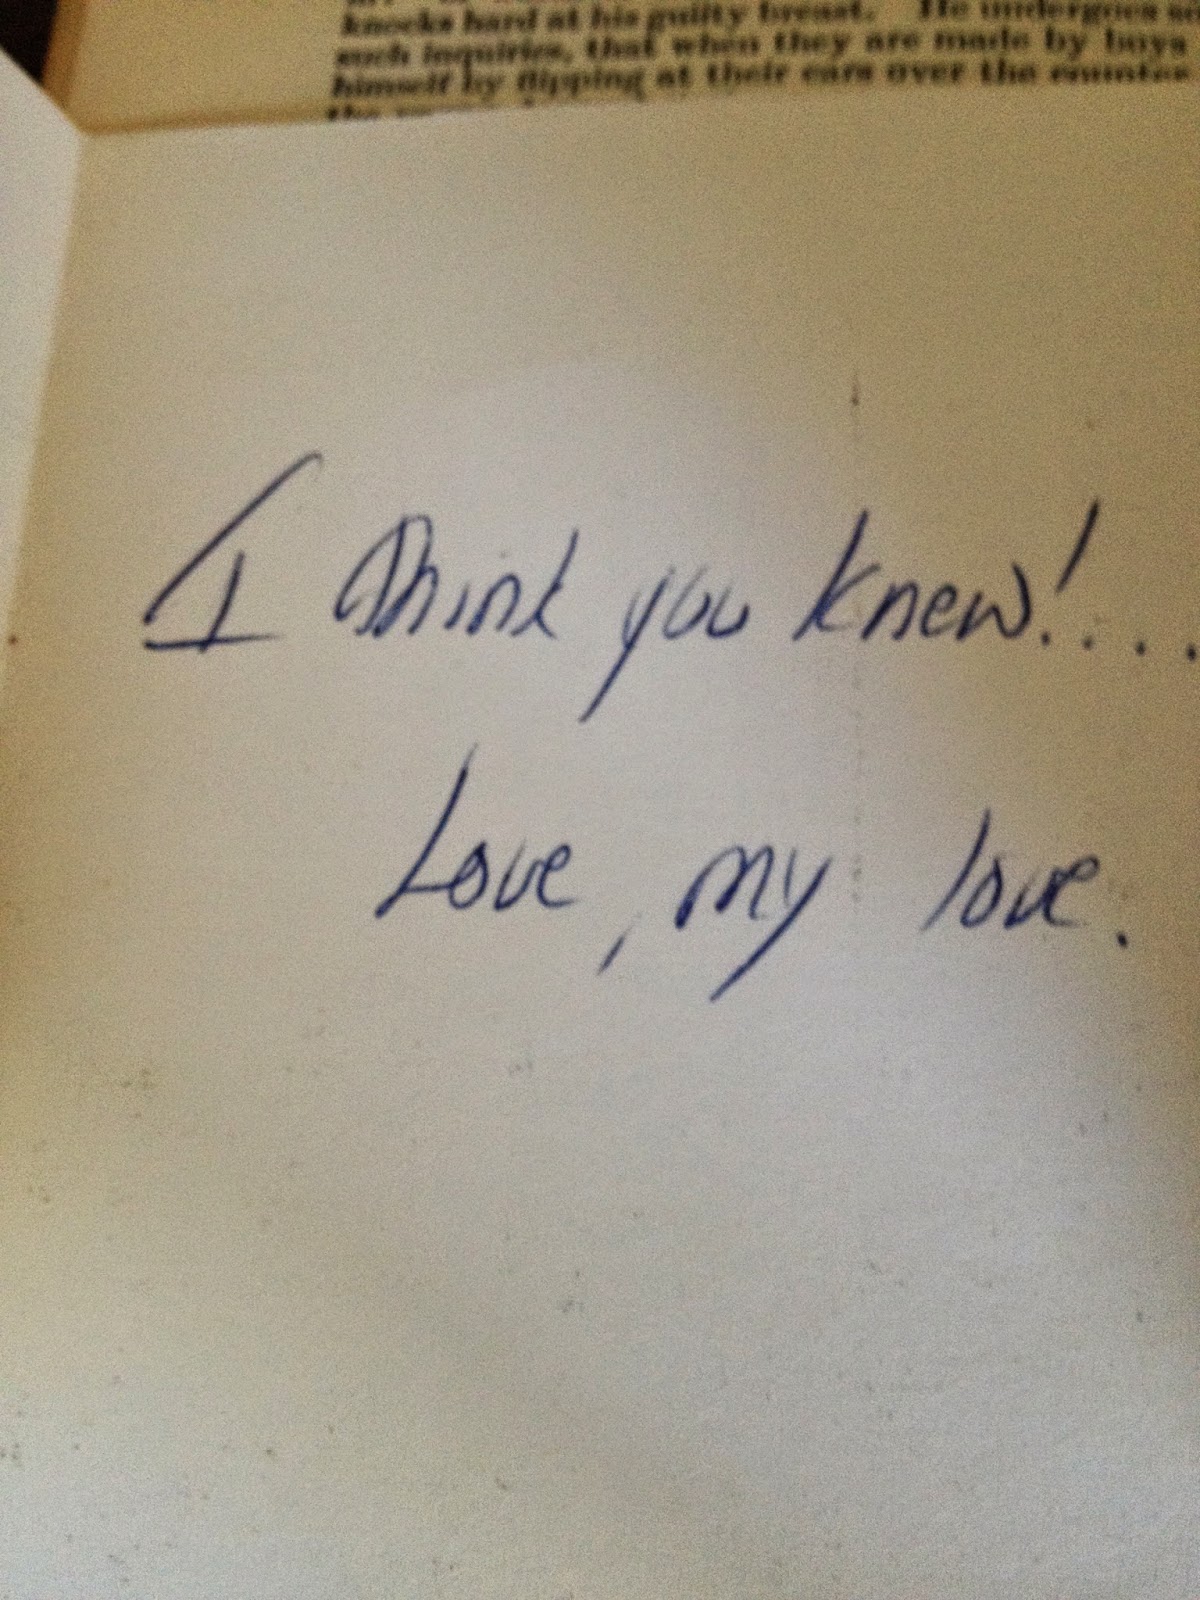 knocks hard at his guilty breast. He undergoes so
such inquiries, that when they are made by boys
himself by flipping at their ears over the counter
the
I think you knew!....
Love, my love.